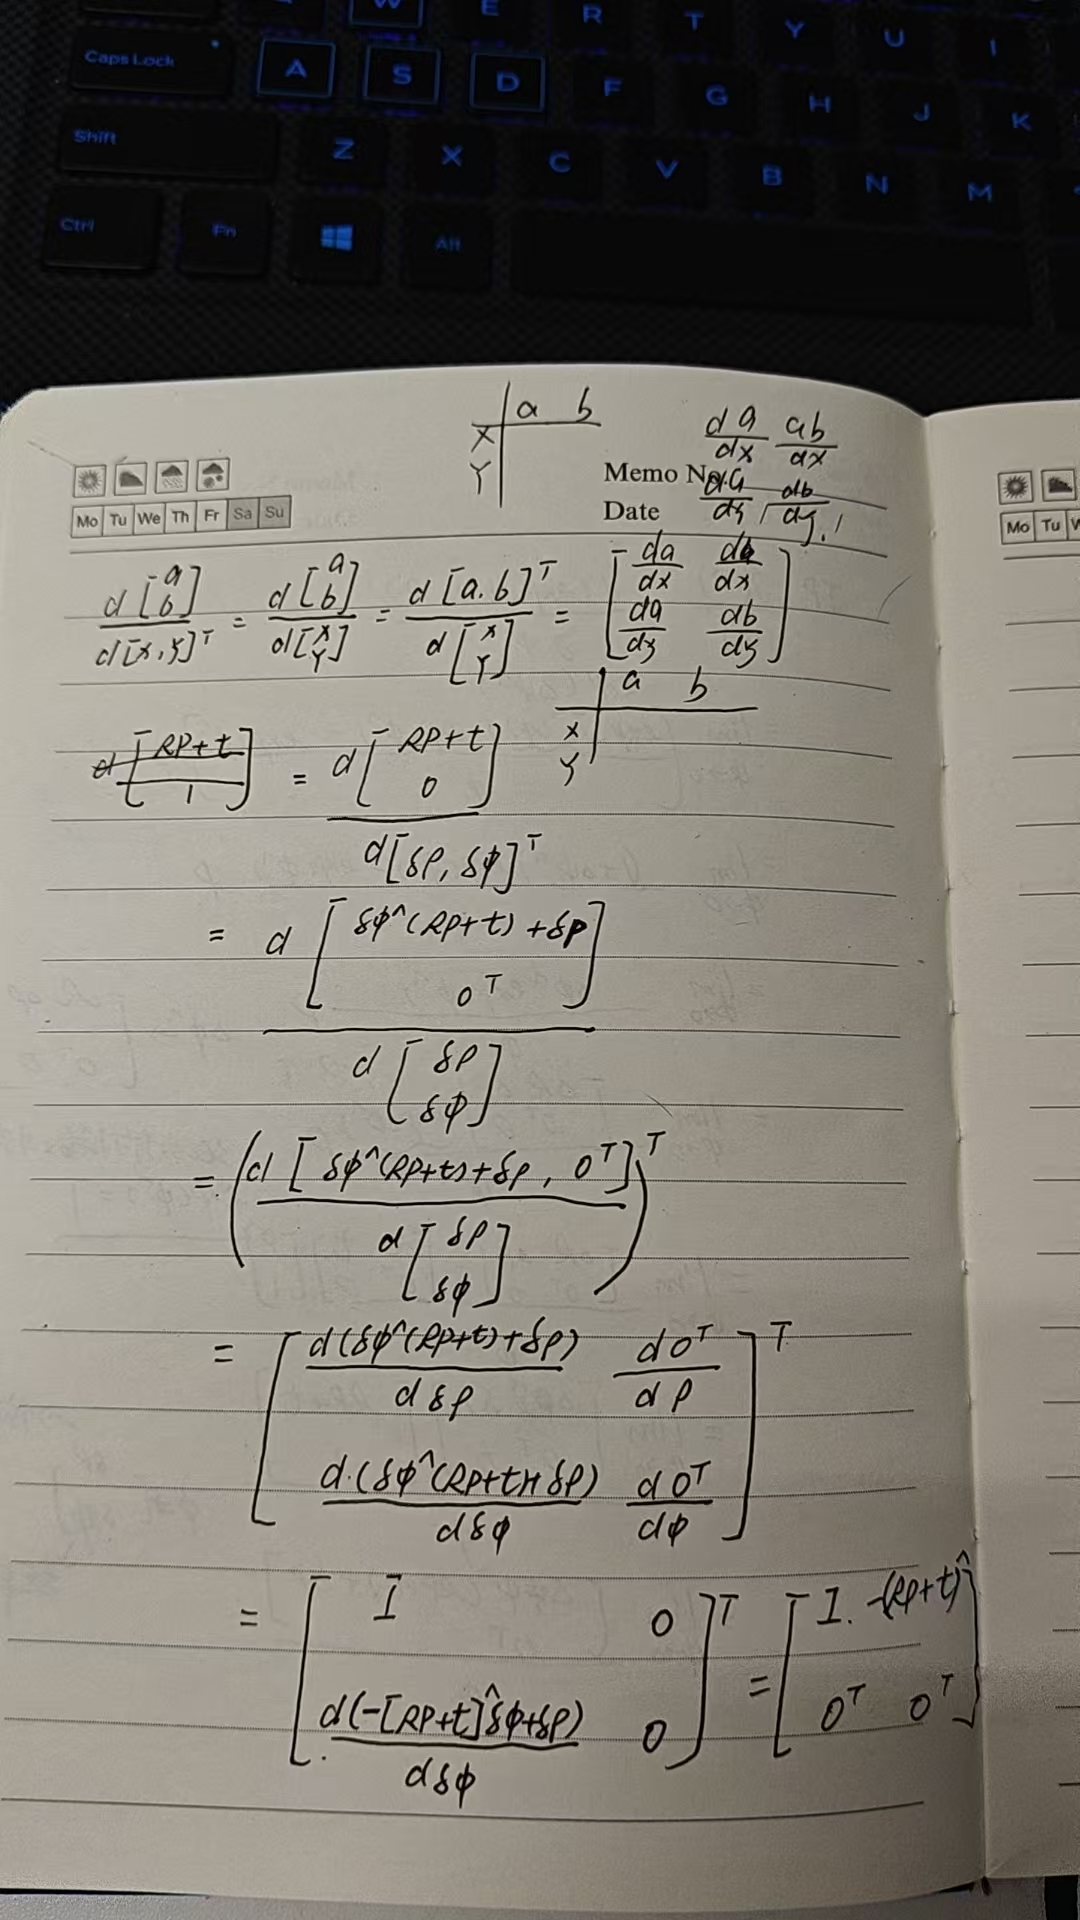 W E R T Y U I
Caps Lock A S D F G H J K
Shift Z X C V B N M
Ctrl Fn Alt
a b
X
Y
da/dx ab/ax
Memo No. da/dy, db/dy.
Mo Tu We Th Fr Sa Su
Date
Mo Tu W
d[a b]/d[x, y]ᵀ = d[a b]/d[x Y] = d[a. b]ᵀ/d[x Y] = [da/dx db/dx
da/dy db/dy]
a b
x
y
d[RP+t 1] = d[RP+t 0]/d[δρ, δϕ]ᵀ
= d[δϕ^(RP+t)+δρ 0ᵀ]/d[δρ δϕ]
= (d[δϕ^(RP+t)+δρ, 0ᵀ]/d[δρ δϕ])ᵀ
= [d(δϕ^(RP+t)+δρ)/dδρ d0ᵀ/dρ
d.(δϕ^(RP+t)+δρ)/dδϕ d0ᵀ/dϕ]ᵀ
= [I 0
d(-[RP+t]^δϕ+δρ)/dδϕ 0]ᵀ = [I. -(RP+t)^
0ᵀ 0ᵀ]